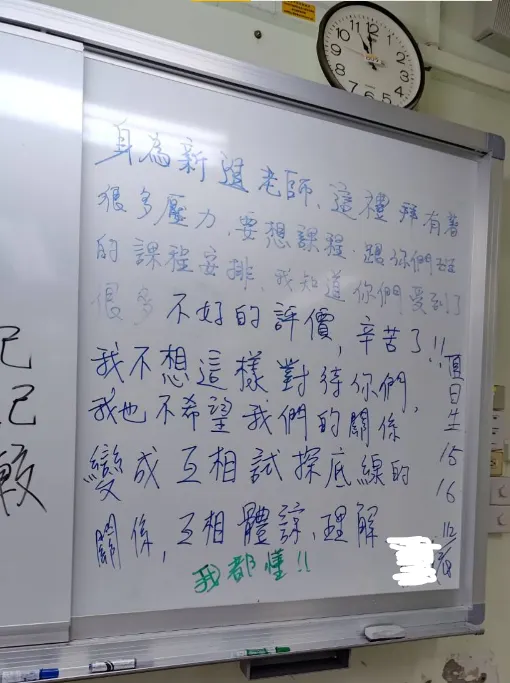 身為新進老師,這禮拜有著
很多壓力,要想課程,跟你們班
的課程安排,我知道你們受到了
很多不好的評價,辛苦了!!
我不想這樣對待你們,
我也不希望我們的關係
變成互相試探底線的
關係,互相體諒、理解
我都懂!!
值日生
15
16
12
己
己
較